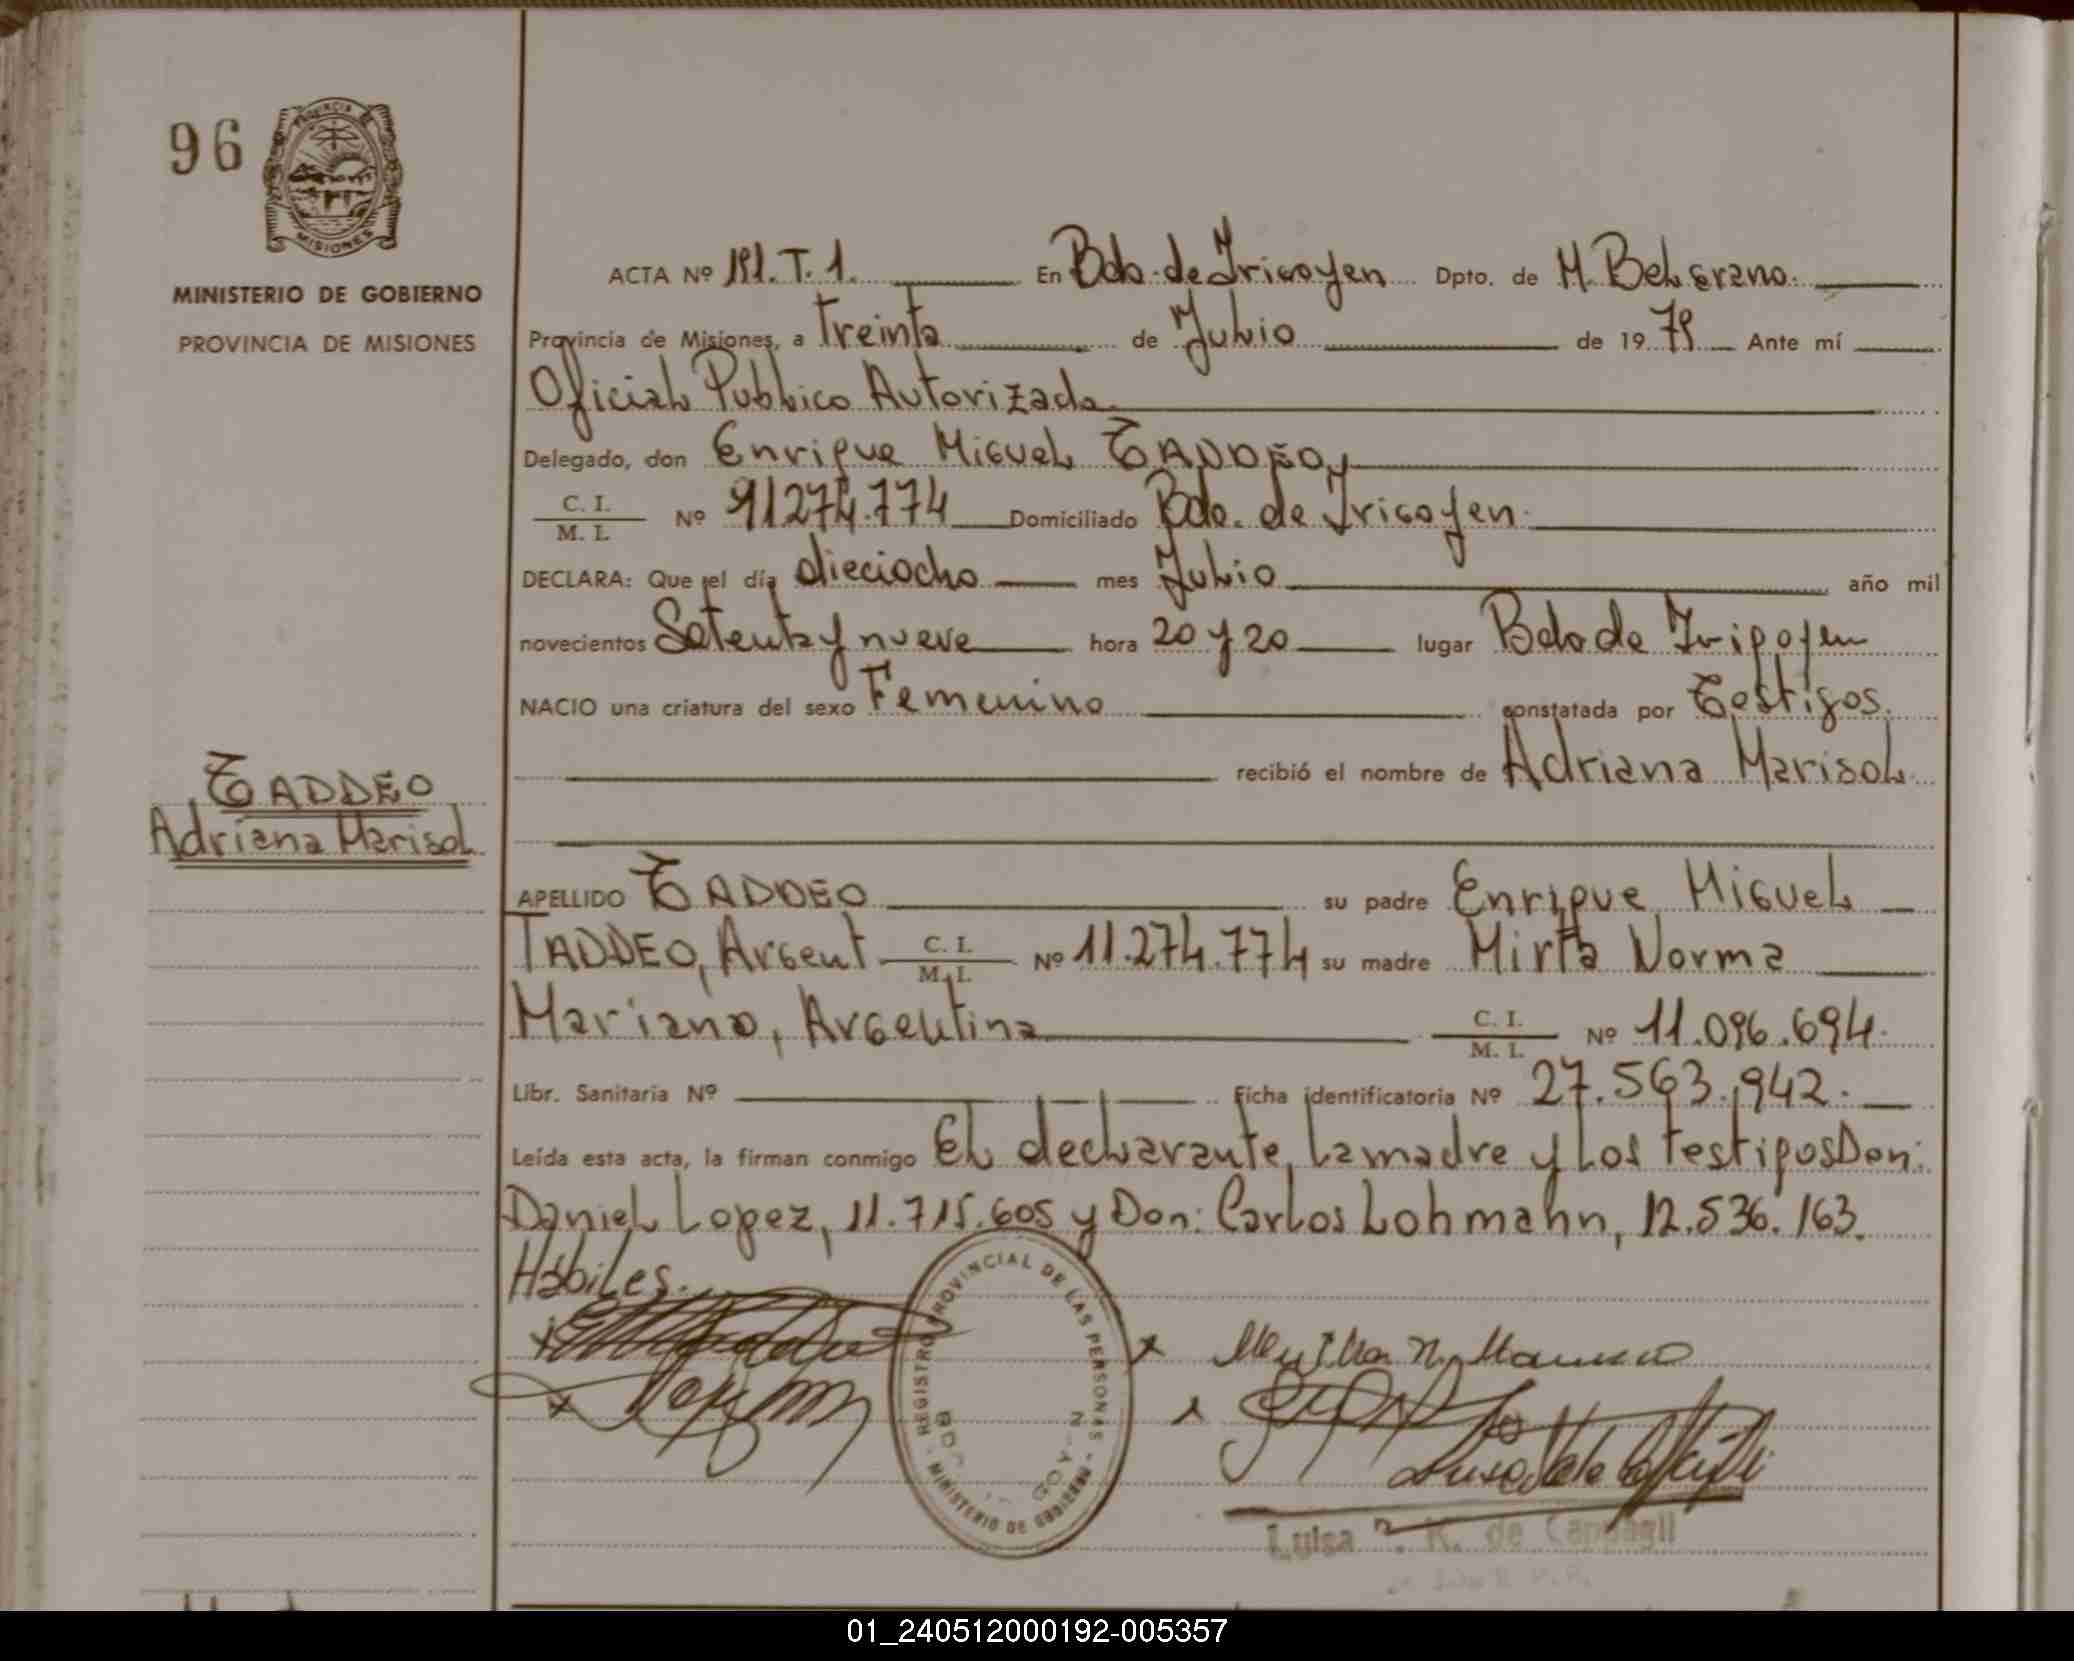 96
PROVINCIA
MISIONES
MINISTERIO DE GOBIERNO
PROVINCIA DE MISIONES
ACTA Nº 191. T. 1. En Bdo. de Irigoyen Dpto. de M. Belgrano.
Provincia de Misiones, a Treinta de Julio de 1979 Ante mí
Oficial Publico Autorizado
Delegado, don Enrique Miguel TADDEO,
C. I. / M. I. Nº 11274.774 Domiciliado Bdo. de Irigoyen.
DECLARA: Que el día dieciocho mes Julio año mil
novecientos Setenta y nueve hora 20 y 20 lugar Bdo de Irigoyen
NACIO una criatura del sexo Femenino constatada por Testigos.
recibió el nombre de Adriana Marisol
TADDEO
Adriana Marisol
APELLIDO TADDEO su padre Enrique Miguel
TADDEO, Argent C. I. / M. I. Nº 11.274.774 su madre Mirta Norma
Mariano, Argentina C. I. / M. I. Nº 11.096.694.
Libr. Sanitaria Nº Ficha identificatoria Nº 27.563.942.
Leída esta acta, la firman conmigo El declarante, la madre y los testigos Don:
Daniel Lopez, 11.715.605 y Don: Carlos Lohmann, 12.536.163.
Hábiles.
REGISTRO PROVINCIAL DE LAS PERSONAS
MINISTERIO DE GOBIERNO
Luisa K. de
01_240512000192-005357